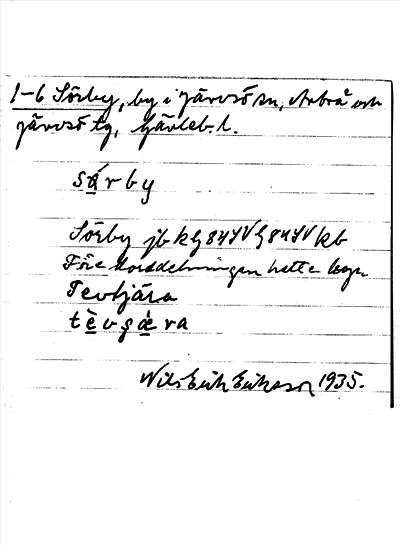 1-6 Sörby, by i Järvsö sn, Arbrå och
Järvsö tg, Gävleb. l.
särby
Sörby jb k G 84 I V G 84 I V kb
Före hette byn
Tevtjära
tèvgæra
Nils Erik Eriksson 1935.